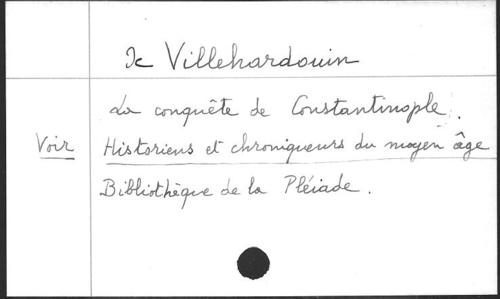 Jc Villehardouin
La conquête de Constantinople.
Voir Historiens et chroniqueurs du moyen âge
Bibliothèque de la Pléiade.